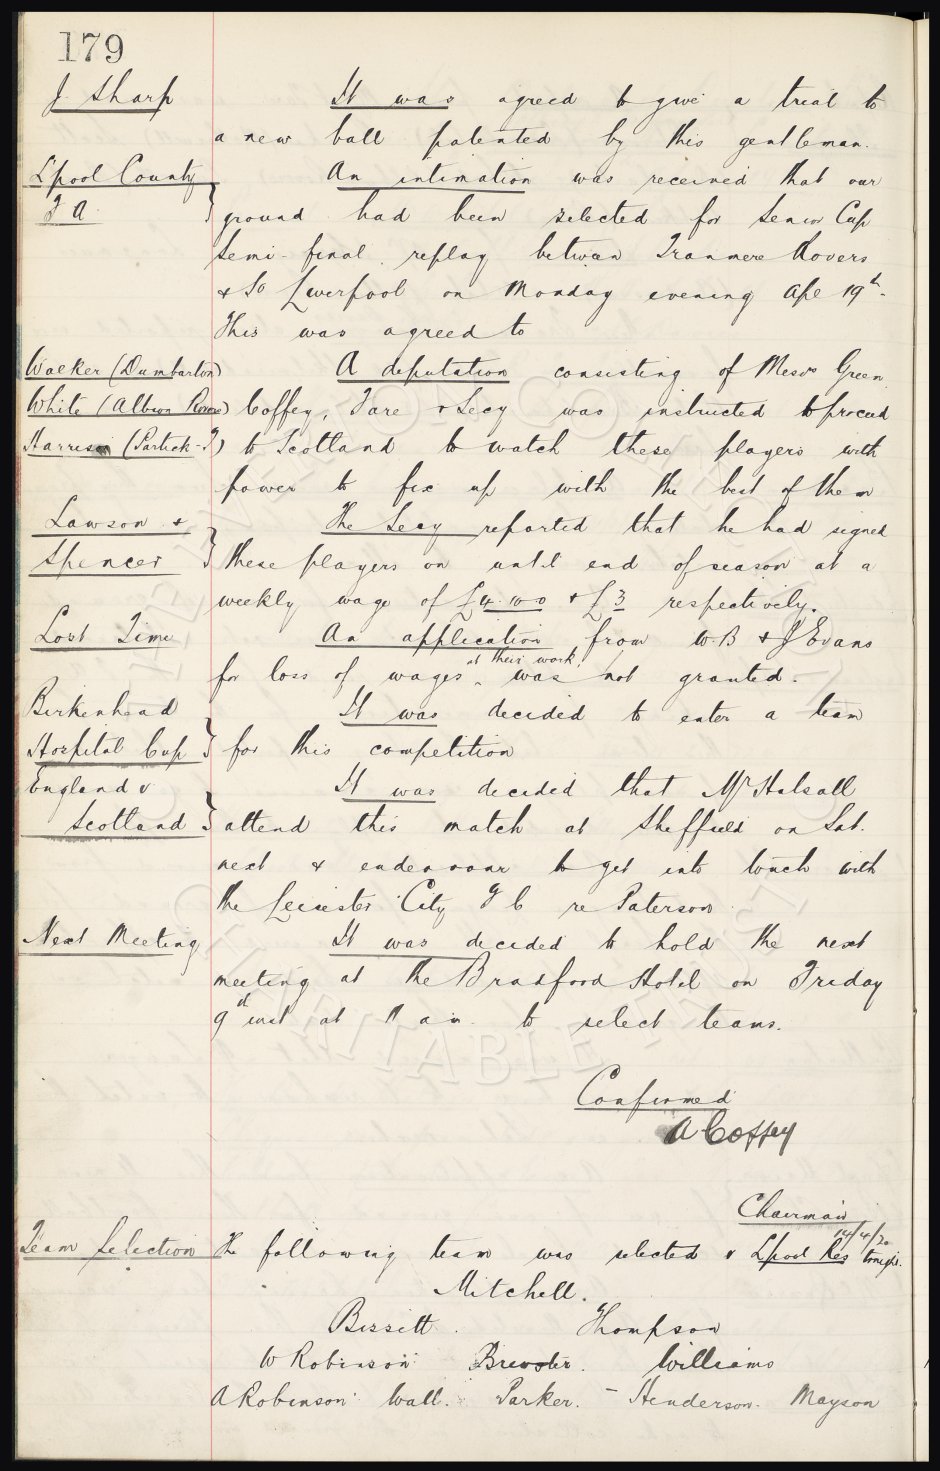 179
J Sharp It was agreed to give a trial to
a new ball patented by this gentleman.
L'pool County An intimation was received that our
F A } ground had been selected for Senior Cup
Semi-final replay between Tranmere Rovers
& So Liverpool on Monday evening Apl 19th.
This was agreed to
Walker (Dumbarton) A deputation consisting of Messrs Green
White (Albion Rovers) Coffey, Fare & Secy was instructed to proceed
Harrison (Partick T) to Scotland to watch these players with
power to fix up with the best of them
Lawson & The Secy reported that he had signed
Spencer } these players on until end of season at a
weekly wage of £4.10.0 & £3 respectively.
Lost Time An application from W B & J Evans
for loss of wages at their work was not granted.
Birkenhead It was decided to enter a team
Hospital Cup } for this competition
England v It was decided that Mr Halsall
Scotland } attend this match at Sheffield on Sat.
next & endeavour to get into touch with
the Leicester City F C re Paterson
Next Meeting It was decided to hold the next
meeting at the Bradford Hotel on Friday
9th inst at 11 am to select teams.
Confirmed
A Coffey
Chairman
14/4/20
Team Selection The following team was selected v L'pool Res tonight.
Mitchell.
Bissitt. Thompson
W Robinson Brewster. Williams
A Robinson Wall. Parker. - Henderson. Mayson